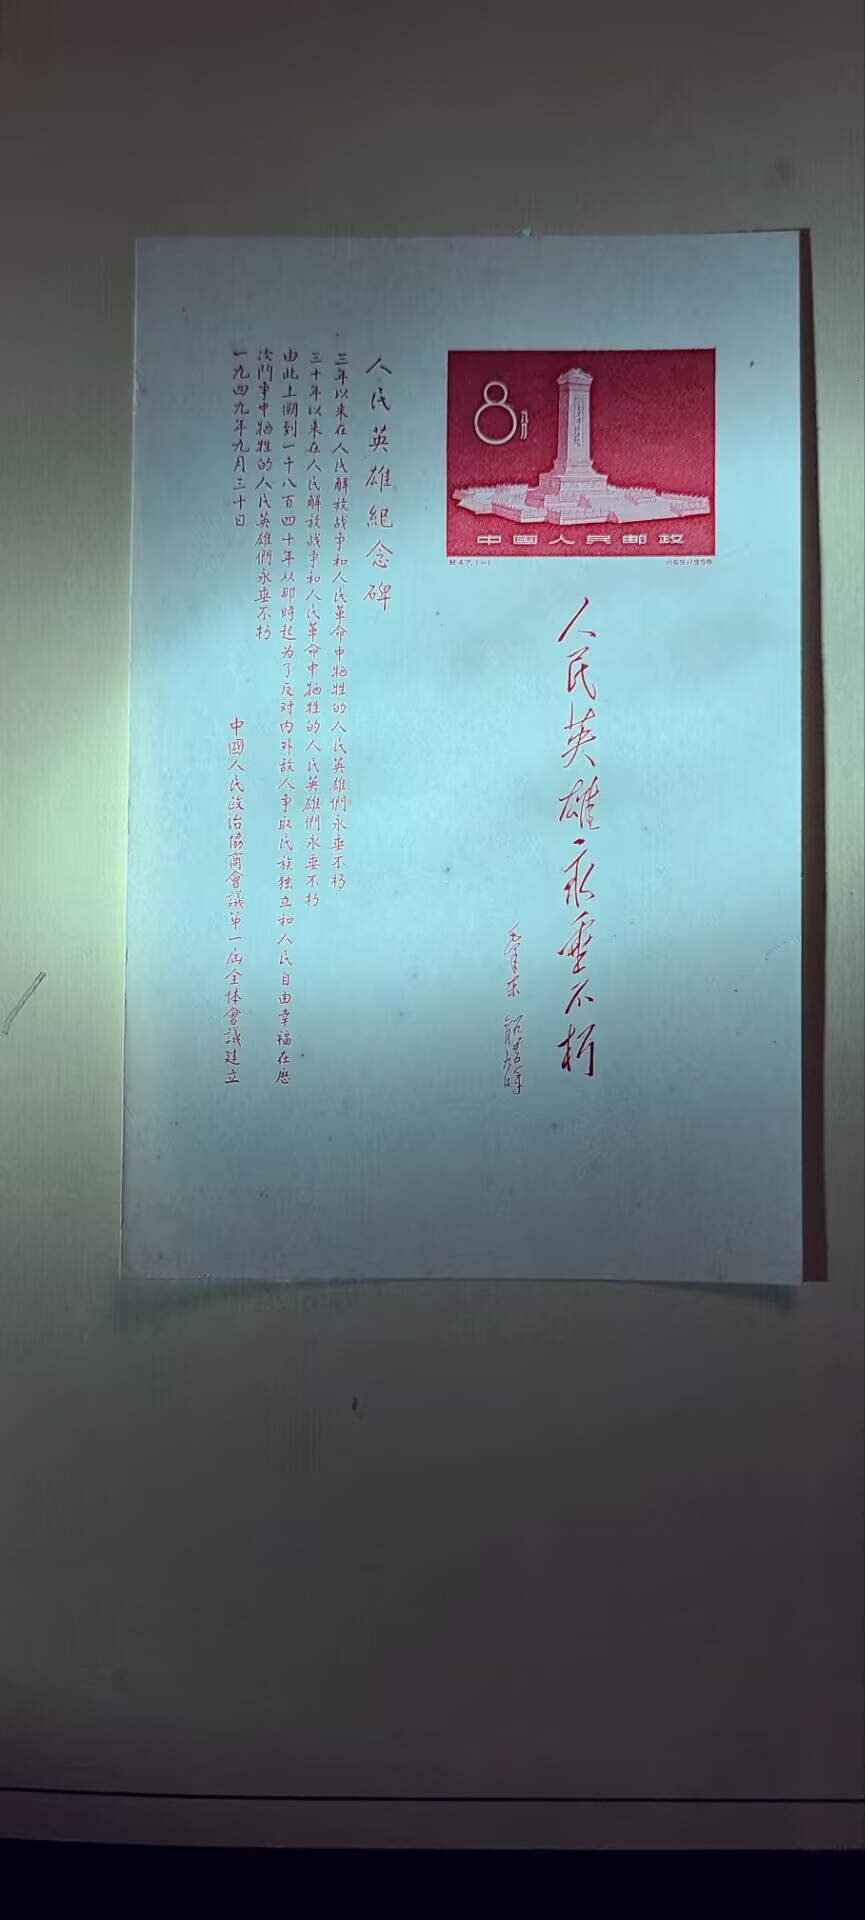 8
八分
中國人民邮政
紀47.1-1
(165)1958
人民英雄永垂不朽
毛澤东
人民英雄紀念碑
三年以来在人民解放战争和人民革命中牺牲的人民英雄們永垂不朽
三十年以来在人民解放战争和人民革命中牺牲的人民英雄們永垂不朽
由此上溯到一千八百四十年从那時起为了反对内外敌人争取民族独立和人民自由幸福在历
次鬥争中牺牲的人民英雄們永垂不朽
一九四九年九月三十日
中國人民政治協商會議第一届全体會議建立